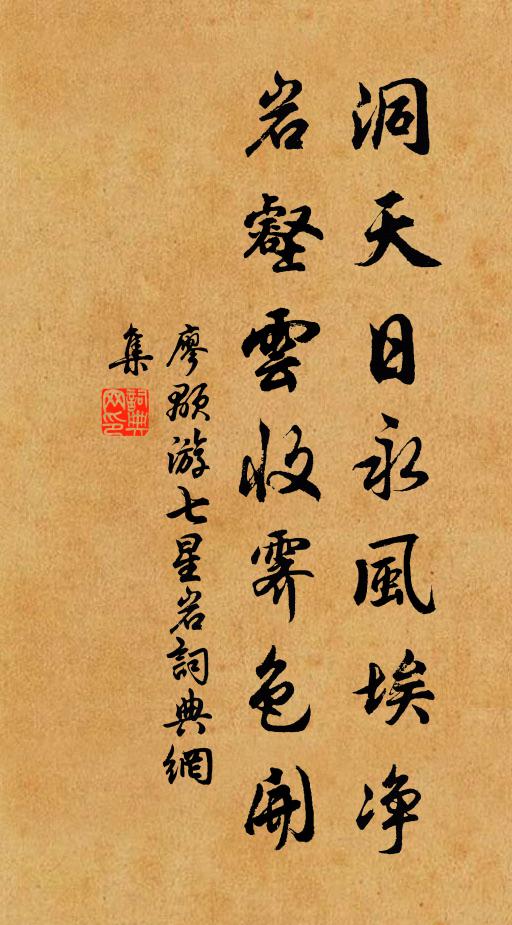 洞天日永風埃净
岩壑雲收霽色開
廖顒游七星岩詞典網
集
詞典網印